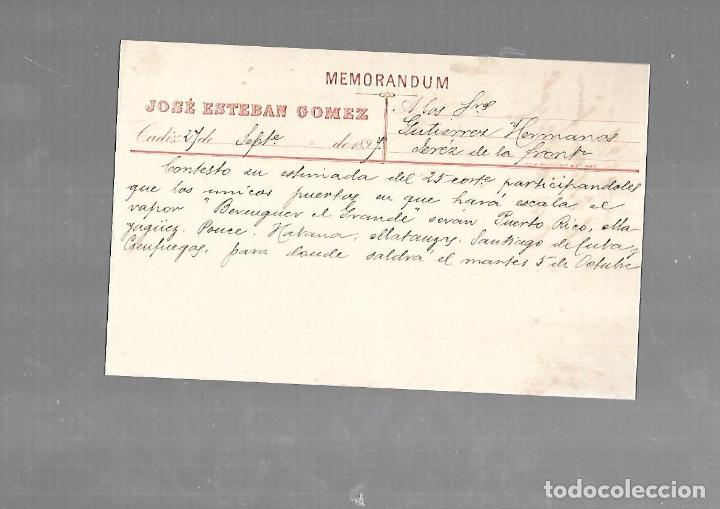 MEMORANDUM
JOSÉ ESTEBAN GOMEZ
A los Sres
Gutierrez Hermanos
Cadiz 27 de Septe de 1897
Jeréz de la Fronta
Contesto su estimada del 25 corte participandoles
que los unicos puertos en que hará escala el
vapor "Berenguer el Grande" serán Puerto Rico, Ma-
yaguez, Ponce, Habana, Matanzas, Santiago de Cuba y
Cienfuegos, para donde saldrá el martes 5 de Octubre
todocoleccion.net